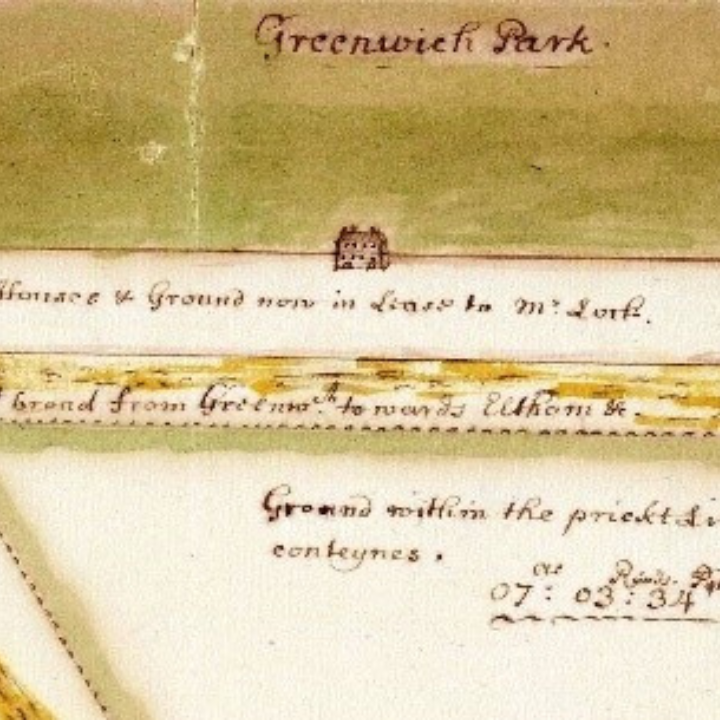 Greenwich Park.
Houses & Ground now in Lease to Mr. Lock.
broad from Greenwch. towards Eltham &c.
Ground within the prickt Li
conteynes.
Ac Roods. P
07: 03: 34